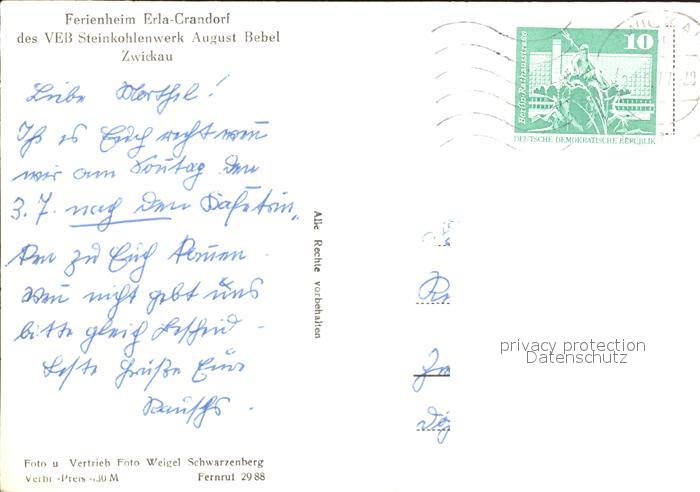 Ferienheim Erla-Crandorf
des VEB Steinkohlenwerk August Bebel
Zwickau
Liebe Merthel!
Ist es Euch recht wenn
wir am Sonntag den
3.7. nach dem Kaffetrin,
ken zu Euch kommen.
Wenn nicht gebt uns
bitte gleich Bescheid.
Beste Grüße Eure
Rauschs.
Foto u Vertrieb Foto Weigel Schwarzenberg
Verbr-Preis -,30 M Fernruf 2988
Alle Rechte vorbehalten
10
Berlin-Rathausstraße
DEUTSCHE DEMOKRATISCHE REPUBLIK
ZWICKAU
privacy protection
Datenschutz